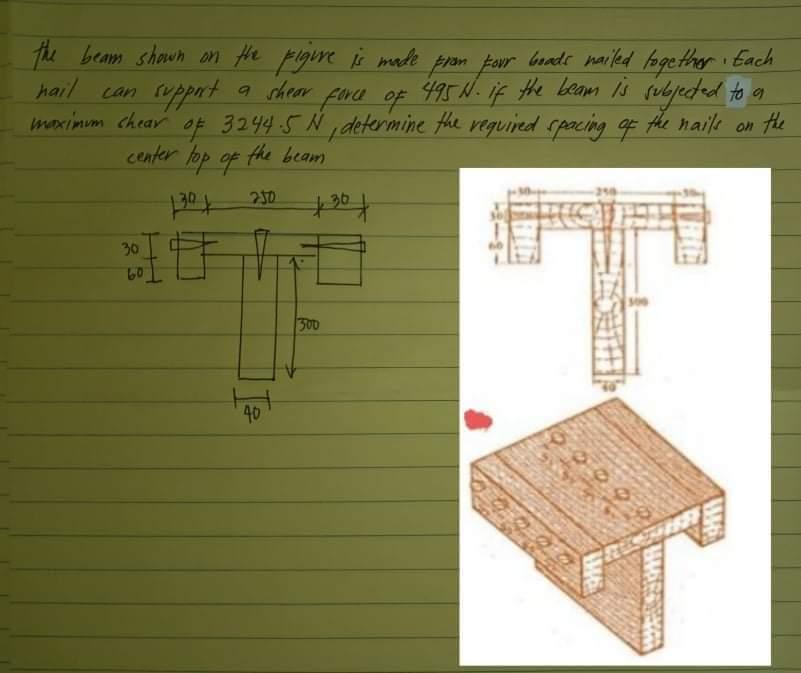 the beam shown on the figure is made from four boads nailed together. Each
nail can support a shear force of 495 N. if the beam is subjected to a
maximum shear of 3244.5 N, determine the required spacing of the nails on the
center top of the beam
30 250 30
30
60
300
40
30 250 30
30
60
300
40